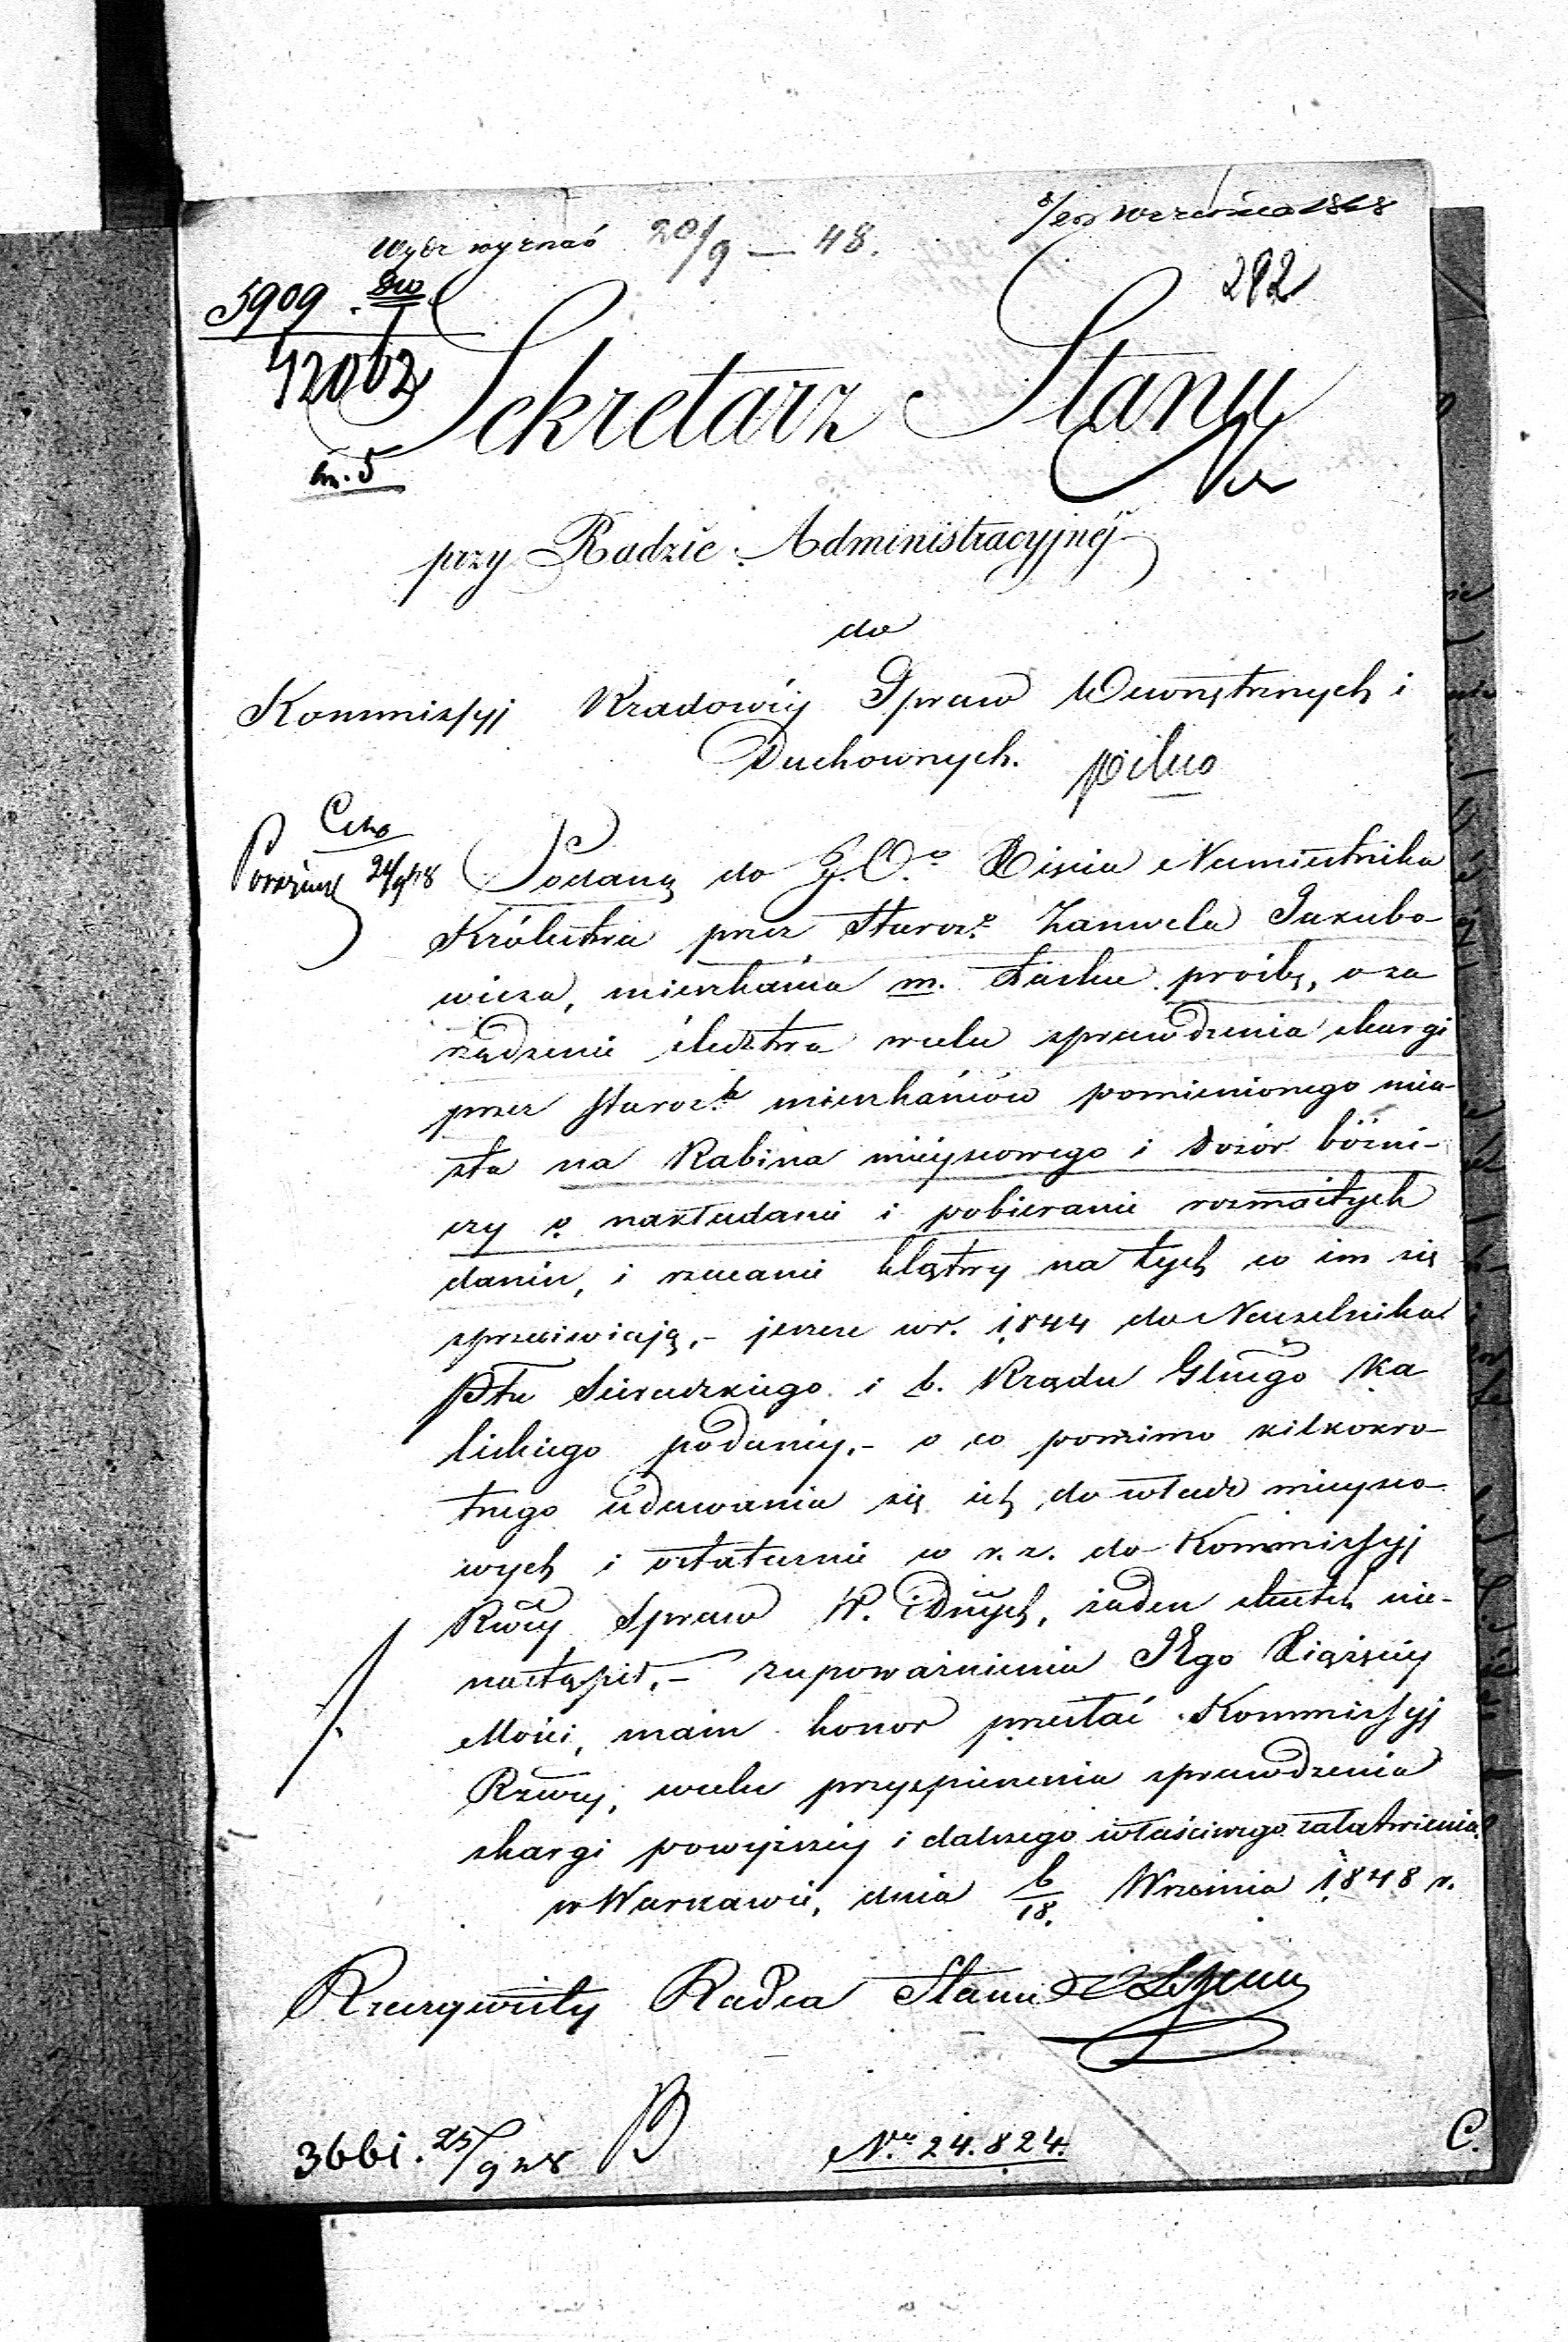 8/20 Września 1848
Wydz wyznań 20/9 — 48.
282
5909 . Dw
12062
Sekretarz Stanu
przy Radzie Administracyjnéj
do
Kommissyj Rządowéj Spraw Wewnętrznych i
Duchownych. pilno
Podaną do J. O. Xięcia Namiestnika
24/9 48
Królestwa przez Staroz. Zanwela Jakubo-
wicza, mieszkańca m. Łasku prośbę, o za
rządzenie śledztwa wcelu sprawdzenia skargi
przez staroz.h mieszkańców pomienionego mia-
sta na Rabina miéyscowego i dozór bóźni-
czy o nakładanie i pobieranie rozmaitych
danin, i rzucanie klątwy na tych co im się
sprzeciwiają,- jeszcze wr. 1844 do Naczelnika
Ptu Sieradzkiego i b. Rządu Glnego Ka
liskiego podanéy,- o co pomimo kilkokro-
tnego udawania się ich do władz mieysco-
wych i ostatecznie w r. z. do Kommissyj
Rwéy Spraw W. i Dnych, żaden skutek nie-
nastąpił,- z upoważnienia JEgo Xiążęcéy
Mości, mam honor przesłać Kommissyj
Rzwéy, wcelu przyspieszenia sprawdzenia
skargi powyższéy i dalszego właściwego załatwienia.
w Warszawie, dnia 6/18. Września 1848 r.
Rzeczywisty Radca Stanu
3661. 25/9 48
No 24.824.
C.